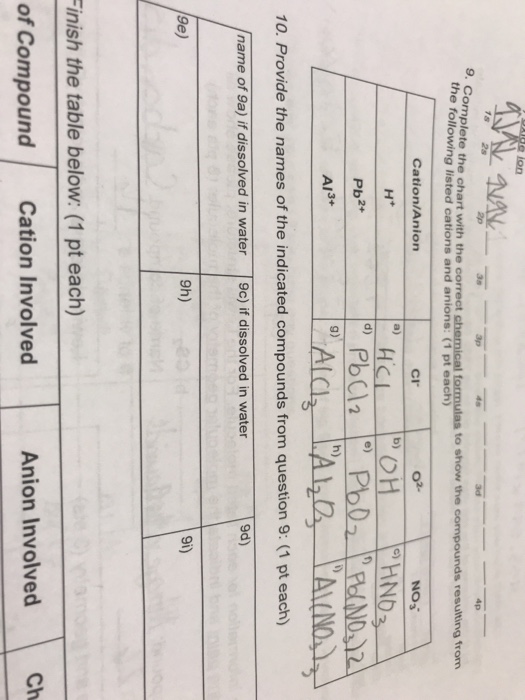 oxide ion
1s 2s 2p 3s 3p 4s 3d 4p
9. Complete the chart with the correct chemical formulas to show the compounds resulting from
the following listed cations and anions: (1 pt each)
Cation/Anion Cl- O2- NO3-
H+ a) HCl b) OH c) HNO3
Pb2+ d) PbCl2 e) PbO2 f) Pb(NO3)2
Al3+ g) AlCl3 h) Al2O3 i) Al(NO3)3
10. Provide the names of the indicated compounds from question 9: (1 pt each)
name of 9a) if dissolved in water 9c) if dissolved in water 9d)
9e) 9h) 9i)
Finish the table below: (1 pt each)
of Compound Cation Involved Anion Involved Ch